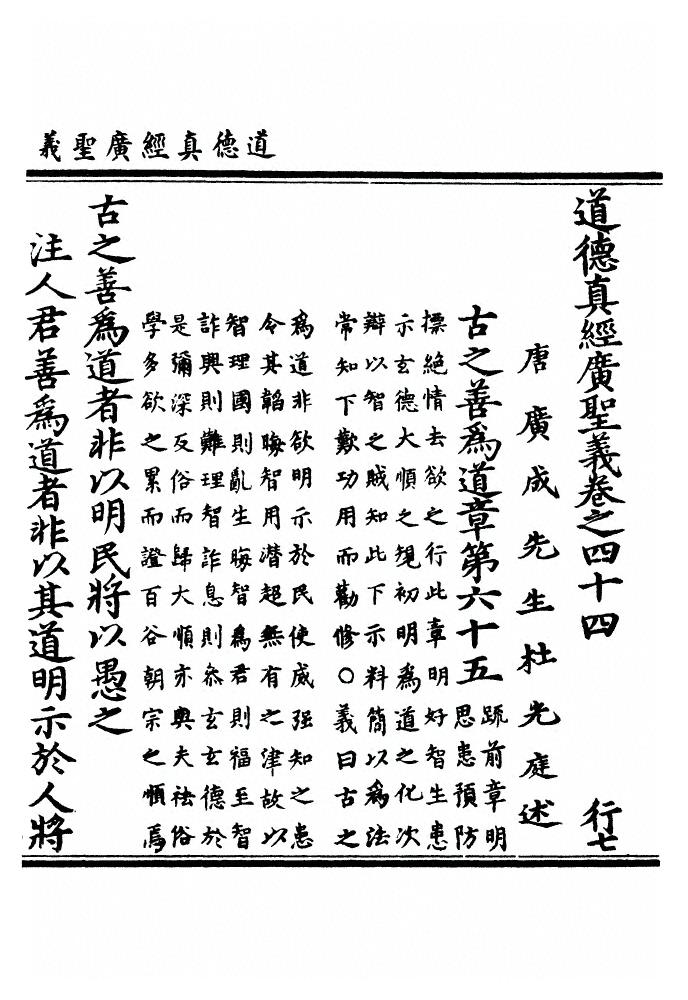 道德真經廣聖義
道德真經廣聖義卷之四十四 行七
唐廣成先生杜光庭述
古之善爲道章第六十五
䟽前章明
思患預防
摽絕情去欲之行此章明好智生患
示玄德大順之規初明爲道之化次
辯以智之賊知此下示料簡以爲法
常知下歎功用而勸修○義曰古之
爲道非欲明示於民使威强知之患
令其韜晦智用潜超無有之津故以
智理國則亂生晦智爲君則福至智
詐興則難理智詐息則叅玄玄德於
是彌深反俗而歸大順亦輿夫袪俗
學多欲之累而證百谷朝宗之順焉
古之善爲道者非以明民將以愚之
注人君善爲道者非以其道明示於人將